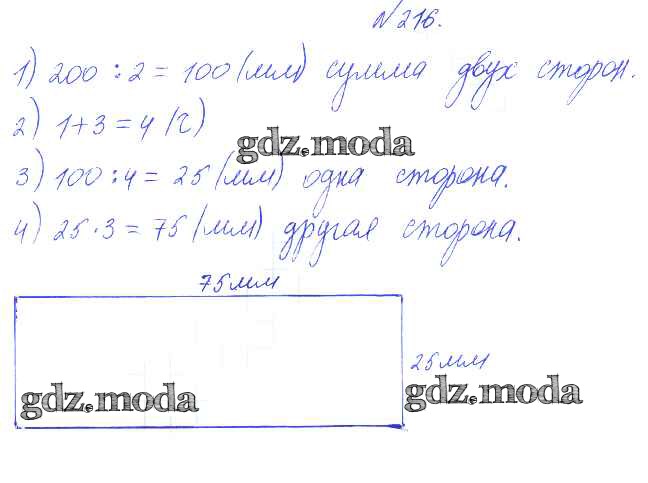 №216.
1) 200 : 2 = 100 (мм) сумма двух сторон.
2) 1 + 3 = 4 (ч)
gdz.moda
3) 100 : 4 = 25 (мм) одна сторона.
4) 25 · 3 = 75 (мм) другая сторона.
75 мм
25 мм
gdz.moda
gdz.moda